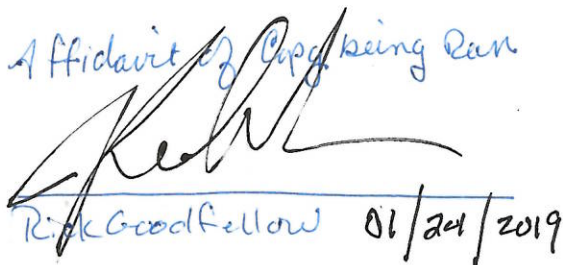 Affidavit of Copy being Ran
Rick Goodfellow 01/24/2019